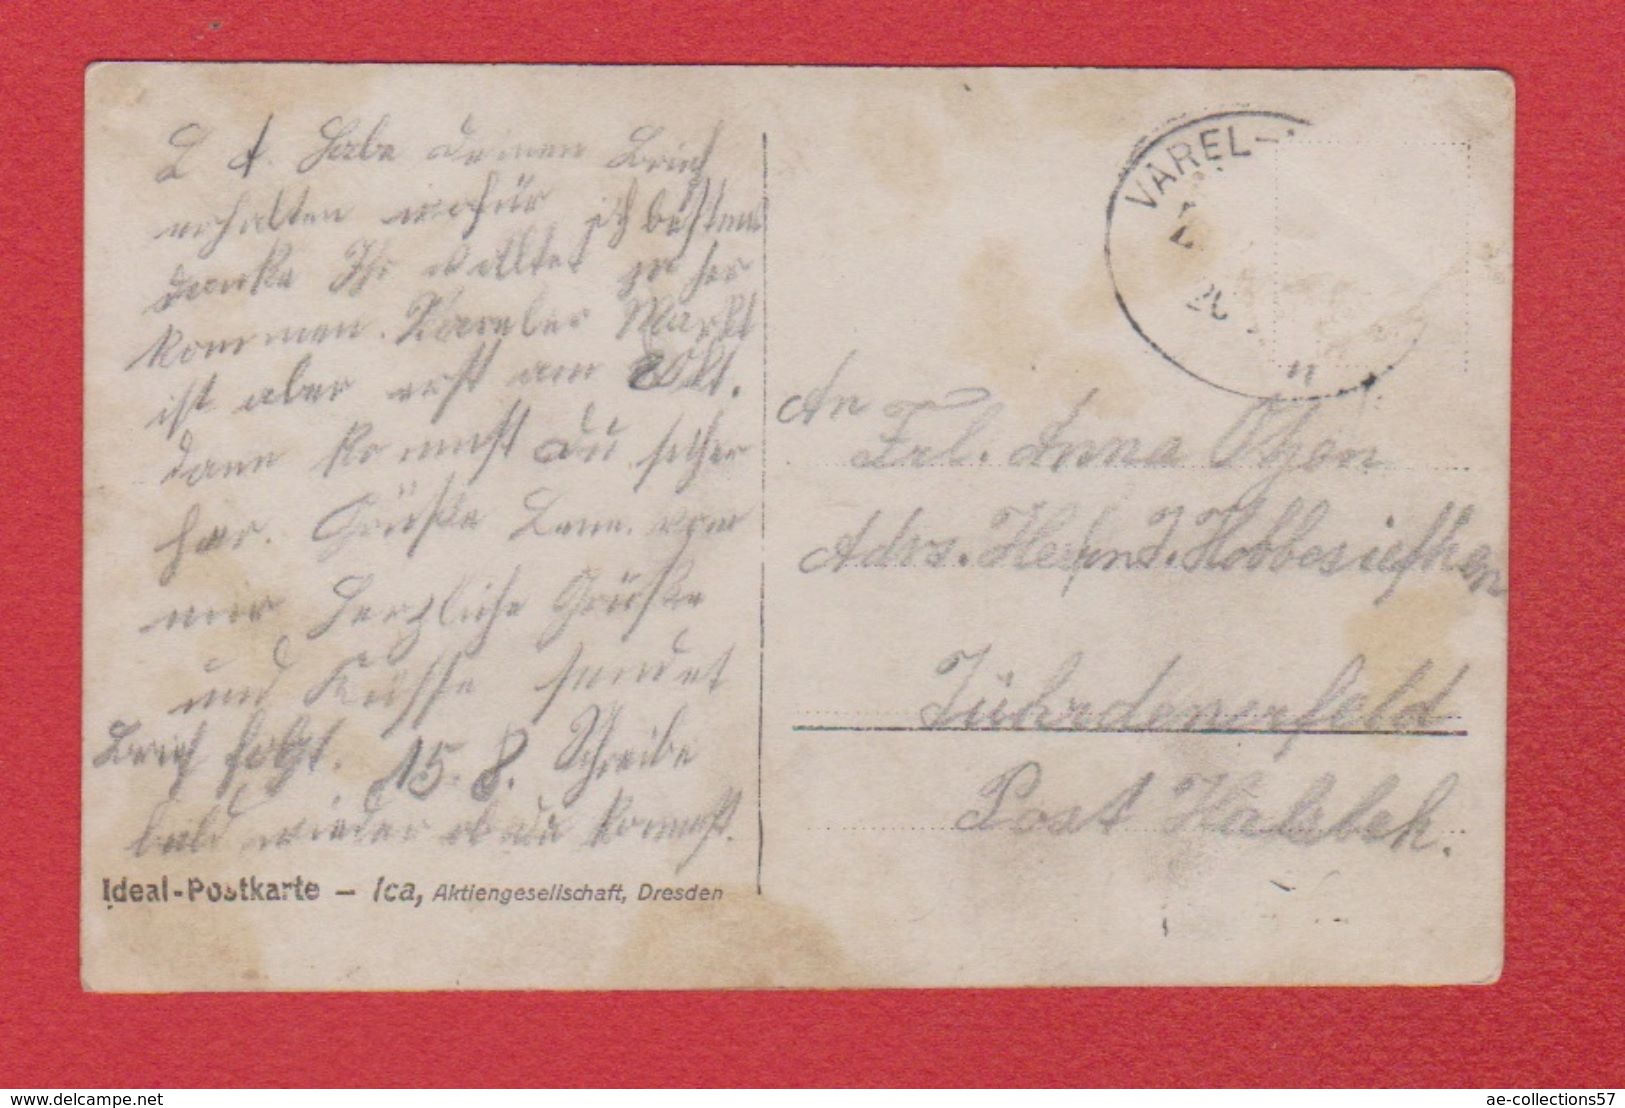 L A. Habe deinen Brief
erhalten wofür ich bestens
danke Ihr wolltet ja her
kommen. Vareler Markt
ist aber erst am Okt.
dann kommst Du sicher
her. Grüße von
mir Herzliche Grüße
und Küsse sendet
Brief folgt. 15. 8. Schreibe
bald wieder ob du kommst.
Ideal-Postkarte – Ica, Aktiengesellschaft, Dresden
VAREL-
An
Frl. Anna
Adrs. Herrn J.
Jührdenerfeld
Post
www.delcampe.net
ae-collections57